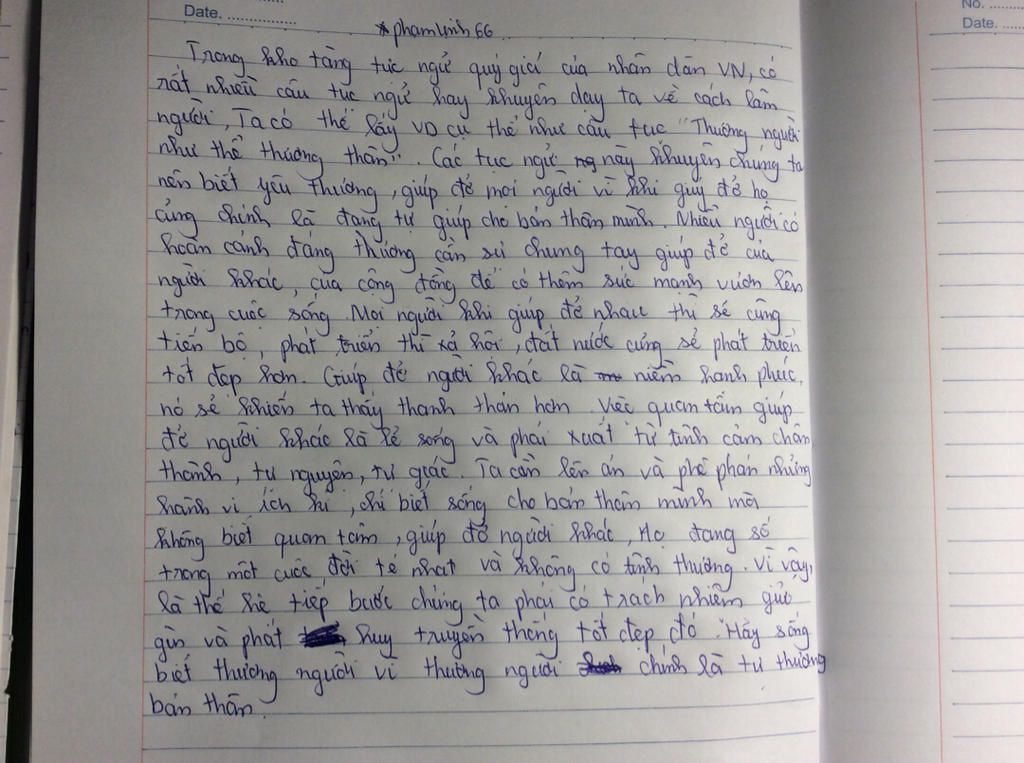 Date. ................
No. ........
Date. ........
*phamlinh 6G
Trong kho tàng tục ngử quý giá của nhân dân VN, có
rất nhiều câu tục ngử hay khuyên dạy ta về cách làm
người, Ta có thể lấy VD cụ thể như câu tục "Thương người
như thể thương thân". Các tục ngử này khuyên chúng ta
nên biết yêu thương, giúp đở mọi người vì khi giúy đở họ
củng chính là đang tự giúp cho bản thân mình. Nhiều người có
hoàn cảnh đáng thương cần sử chung tay giúp đở của
người khác, của cộng đồng để có thêm sức mạnh vươn lên
trong cuộc sống. Mọi người khi giúp đở nhau thì sẽ cùng
tiến bộ, phát triển thì xả hội, đất nước củng sẻ phát triển
tốt đẹp hơn. Giúp đở người khác là niềm hạnh phúc,
nó sẻ khiến ta thấy thanh thản hơn. Việc quan tâm giúp
đở người khác là lẻ sống và phải xuất từ tình cảm chân
thành, tự nguyện, tự giác. Ta cần lên án và phê phán những
hành vi ích kỉ, chỉ biết sống cho bản thân mình mà
không biết quan tâm, giúp đở người khác, Họ đang số
trong một cuộc đời tẻ nhạt và không có tình thương. Vì vậy,
là thế hệ tiếp bước chúng ta phải có trách nhiệm giử
gìn và phát huy truyền thống tốt đẹp đó. Hãy sống
biết thương người vì thương người chính là tự thương
bản thân.